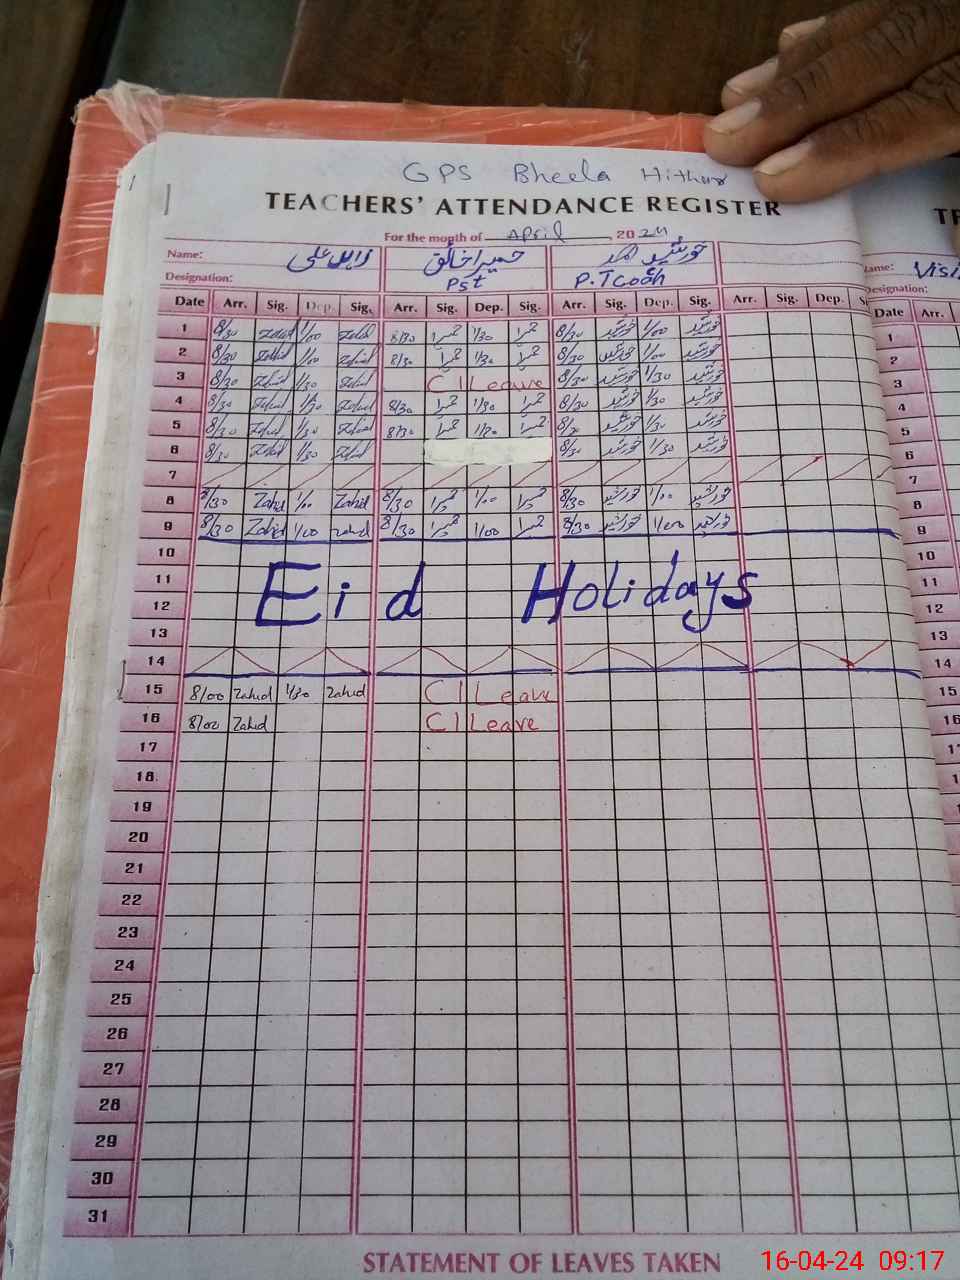 GPS Bheela Hithar
TEACHERS' ATTENDANCE REGISTER
For the month of April, 2024
Name: زاہد علی حمیرا خالق خورشید احمد
Designation: Pst P.Tcoah
Date Arr. Sig. Dep. Sig. Arr. Sig. Dep. Sig. Arr. Sig. Dep. Sig. Arr. Sig. Dep.
1 8/30 Zahid 1/00 Zahid 8/30 حمیرا 1/30 حمیرا 8/30 خورشید 1/00 خورشید
2 8/30 Zahid 1/00 Zahid 8/30 حمیرا 1/30 حمیرا 8/30 خورشید 1/00 خورشید
3 8/30 Zahid 1/30 Zahid C l Leave 8/30 خورشید 1/30 خورشید
4 8/30 Zahid 1/30 Zahid 8/30 حمیرا 1/30 حمیرا 8/30 خورشید 1/30 خورشید
5 8/30 Zahid 1/30 Zahid 8/30 حمیرا 1/30 حمیرا 8/30 خورشید 1/30 خورشید
6 8/30 Zahid 1/30 Zahid 8/30 خورشید 1/30 خورشید
7
8 8/30 Zahid 1/00 Zahid 8/30 حمیرا 1/00 حمیرا 8/30 خورشید 1/00 خورشید
9 8/30 Zahid 1/00 Zahid 8/30 حمیرا 1/00 حمیرا 8/30 خورشید 1/00 خورشید
10
11
Eid Holidays
12
13
14
15 8/00 Zahid 1/30 Zahid C l Leave
16 8/00 Zahid C l Leave
17
18
19
20
21
22
23
24
25
26
27
28
29
30
31
STATEMENT OF LEAVES TAKEN
Designation:
Date Arr.
1
2
3
4
5
6
7
8
9
10
11
12
13
14
15
16
17
16-04-24 09:17